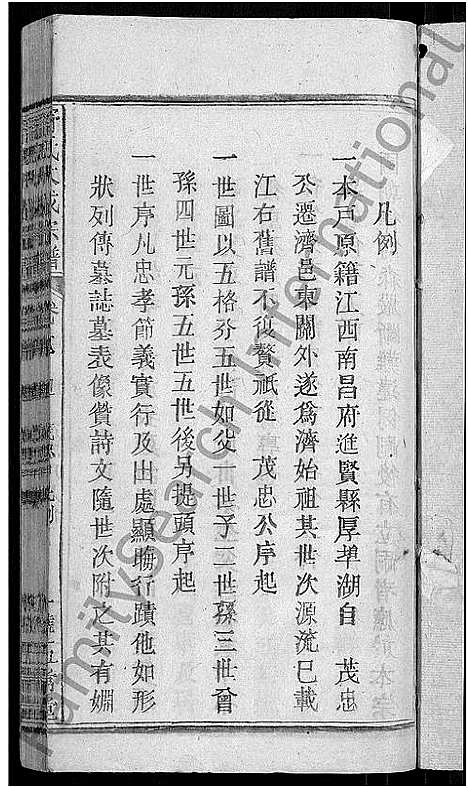 凡例
一本戶原籍江西南昌府進賢縣厚湖自 茂忠
公遷濟邑東關外遂爲濟始祖其世次源流已載
江右舊譜不復贅祇從 茂忠公序起
一世圖以五格分五世如父一世子二世孫三世曾
孫四世元孫五世五世後另提頭序起
一世序凡忠孝節義實行及出處顯晦行蹟他如形
狀列傳墓誌墓表像贊詩文隨世次附之其有嫺
氏大成宗譜
FamilySearch International